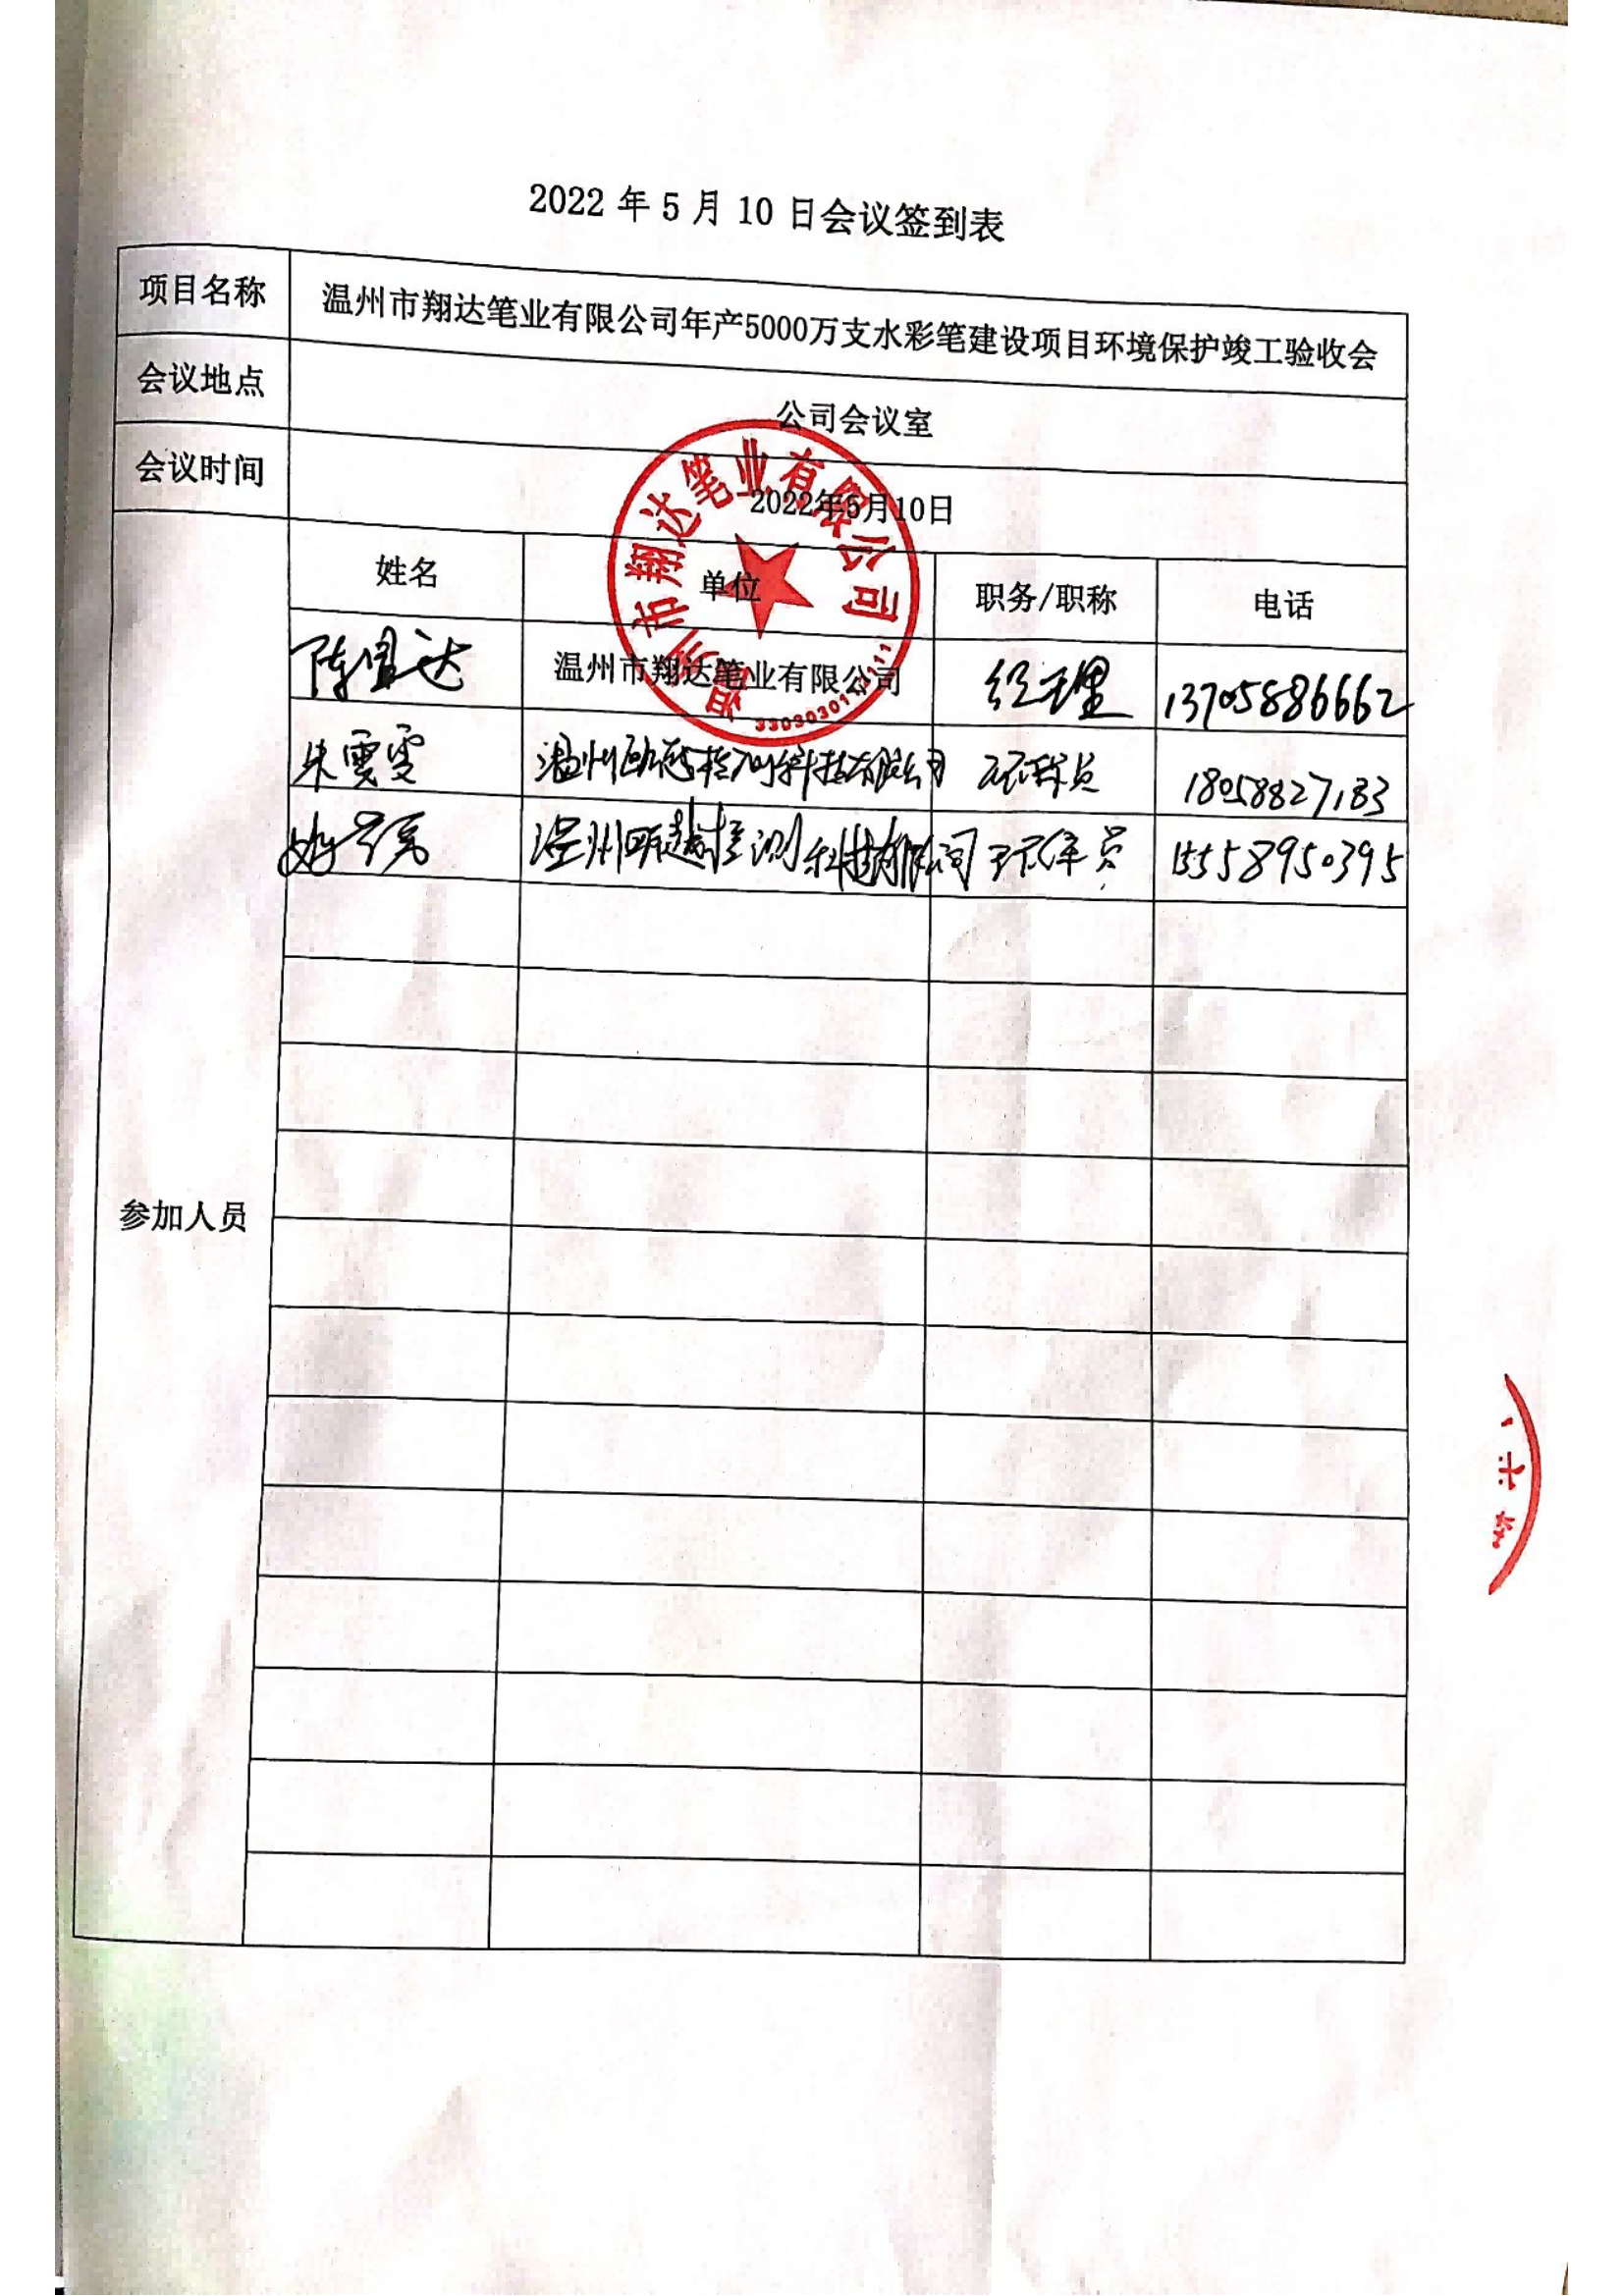 2022 年 5 月 10 日会议签到表
项目名称 温州市翔达笔业有限公司年产5000万支水彩笔建设项目环境保护竣工验收会
会议地点 公司会议室
会议时间 2022年5月10日
参加人员
姓名 单位 职务/职称 电话
陈宜达 温州市翔达笔业有限公司 经理 13705886662
朱雯雯 温州 检测科技有限公司 环保员 18058827133
姚 温州 越检测科技有限公司 环保员 15558950395
温州市翔达笔业有限公司